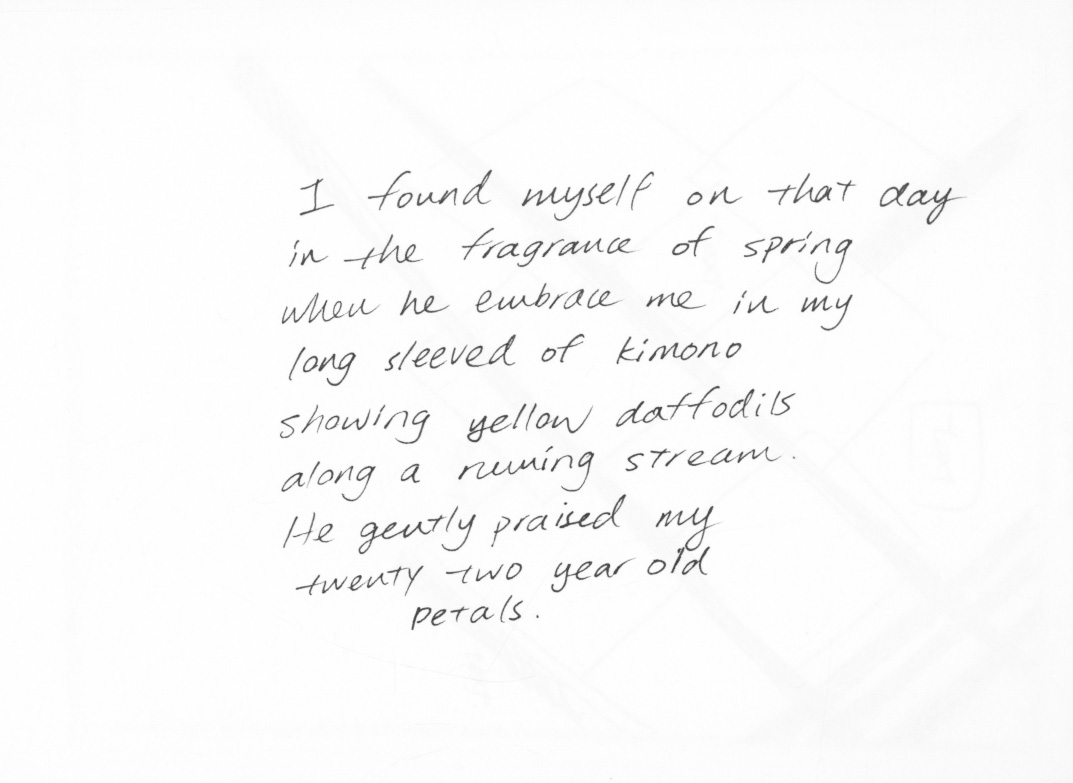 I found myself on that day
in the fragrance of spring
when he embrace me in my
long sleeved of kimono
showing yellow daffodils
along a running stream.
He gently praised my
twenty two year old
petals.